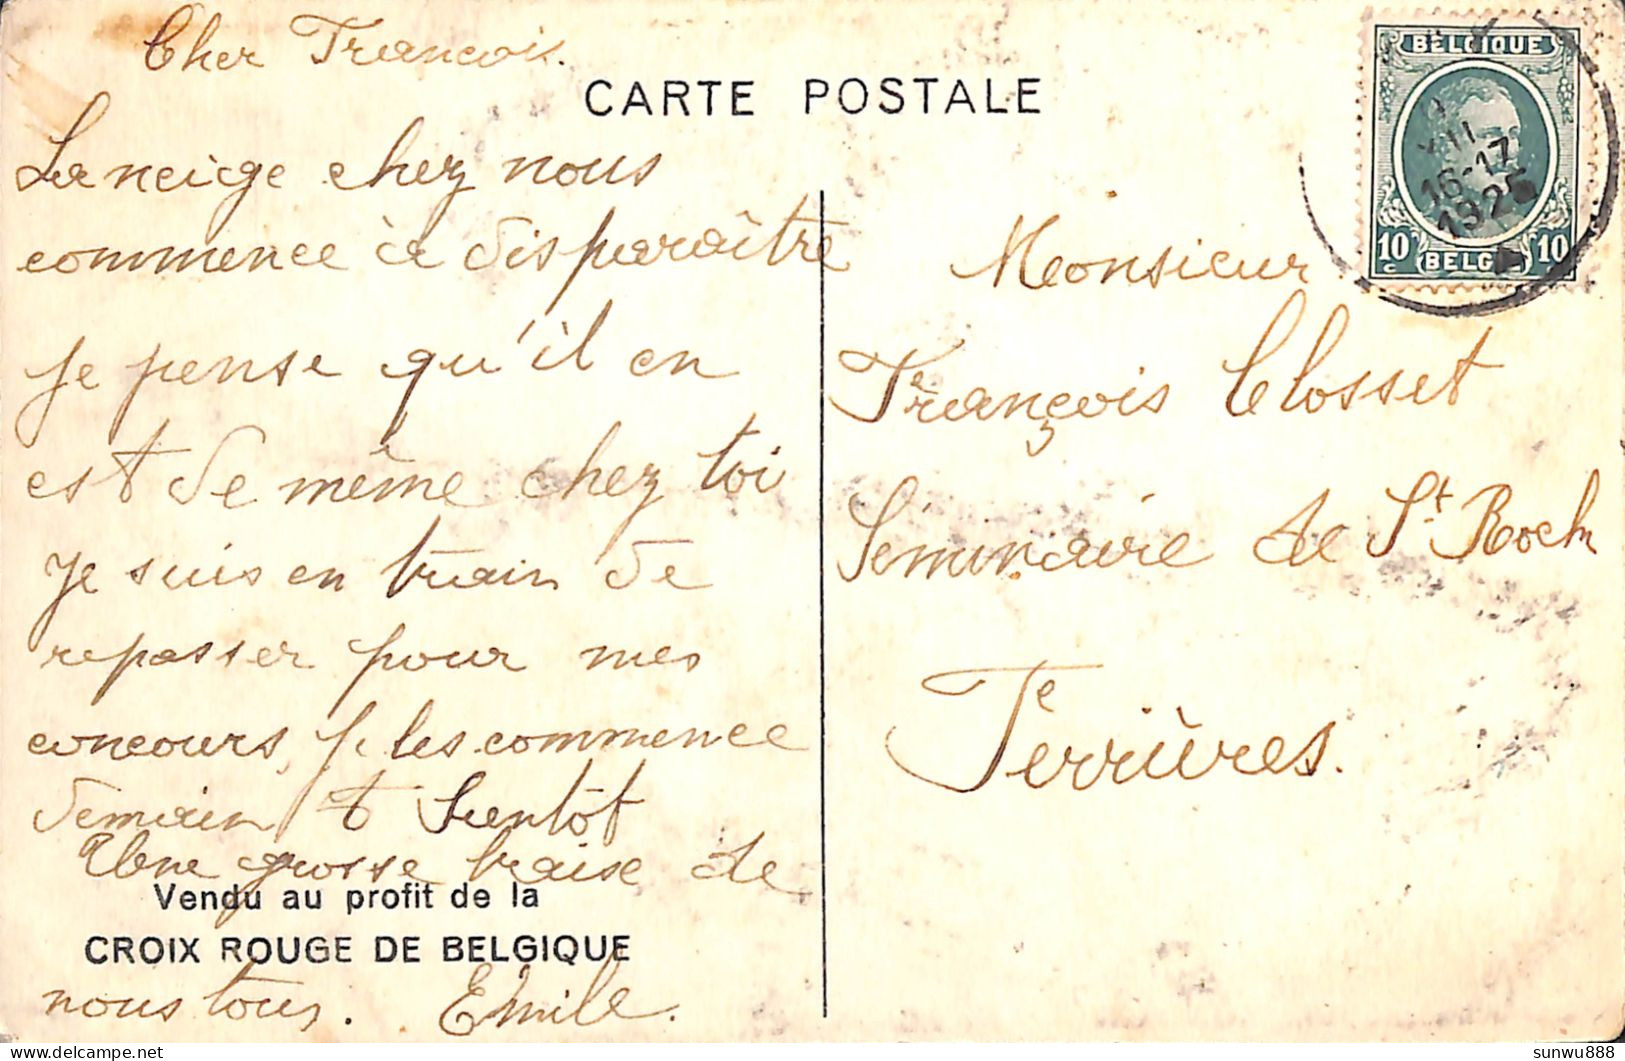 Cher François.
CARTE POSTALE
La neige chez nous
commence à disparaître
je pense qu'il en
est de même chez toi
Je suis en train de
repasser pour mes
concours, je les commence
demain
Bientôt
Une grosse baise de
Vendu au profit de la
CROIX ROUGE DE BELGIQUE
nous tous. Emile.
BELGIQUE
16-17
1925
10 c BELGIË 10 c
Monsieur
François Closset
Séminaire de St. Roch
Ferrières.
sunwu888